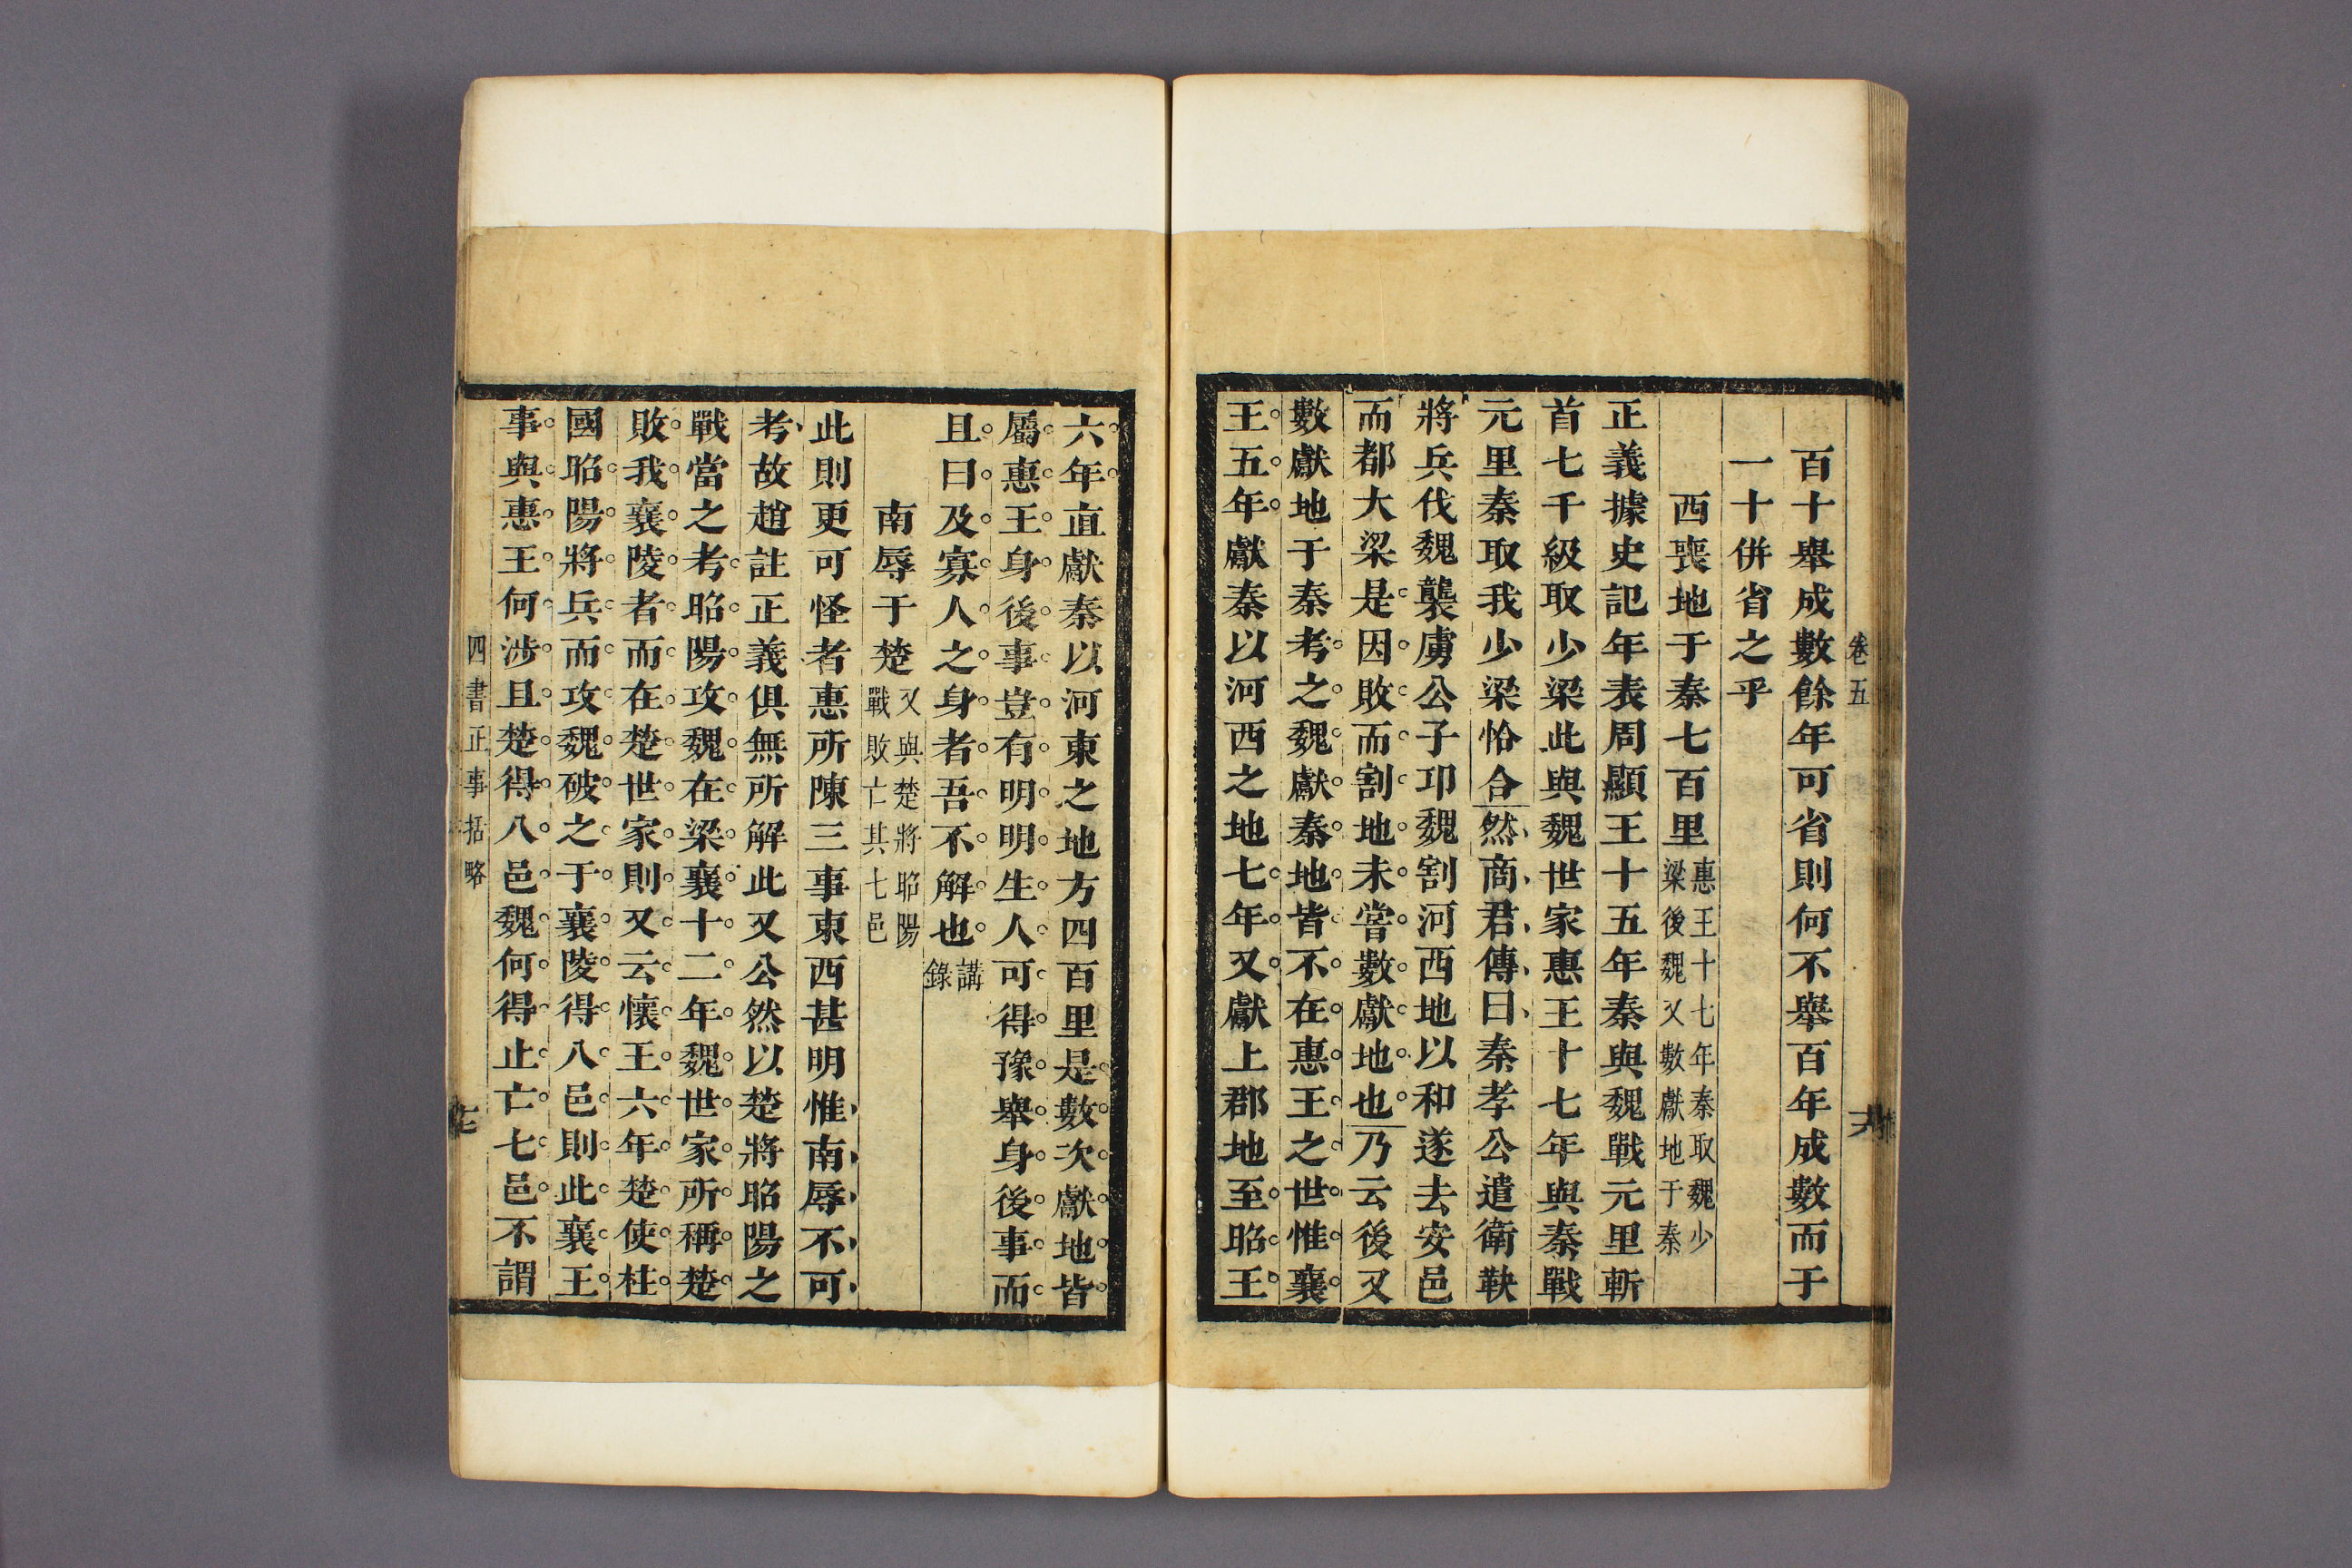 卷五
百十舉成數餘年可省則何不舉百年成數而于
一十併省之乎
西喪地于秦七百里惠王十七年秦取魏少梁後魏又數獻地于秦
正義據史記年表周顯王十五年秦與魏戰元里斬
首七千級取少梁此與魏世家惠王十七年與秦戰
元里秦取我少梁恰合然商君傳曰秦孝公遣衛鞅
將兵伐魏襲虜公子卬魏割河西地以和遂去安邑
而都大梁是因敗而割地未嘗數獻地也乃云後又
數獻地于秦考之魏獻秦地皆不在惠王之世惟襄
王五年獻秦以河西之地七年又獻上郡地至昭王
六年直獻秦以河東之地方四百里是數次獻地皆
屬惠王身後事豈有明明生人可得豫舉身後事而
且曰及寡人之身者吾不解也講錄
南辱于楚又與楚將昭陽戰敗亡其七邑
此則更可怪者惠所陳三事東西甚明惟南辱不可
考故趙註正義俱無所解此又公然以楚將昭陽之
戰當之考昭陽攻魏在梁襄十二年魏世家所稱楚
敗我襄陵者而在楚世家則又云懷王六年楚使柱
國昭陽將兵而攻魏破之于襄陵得八邑則此襄王
事與惠王何涉且楚得八邑魏何得止亡七邑不謂
四書正事括略